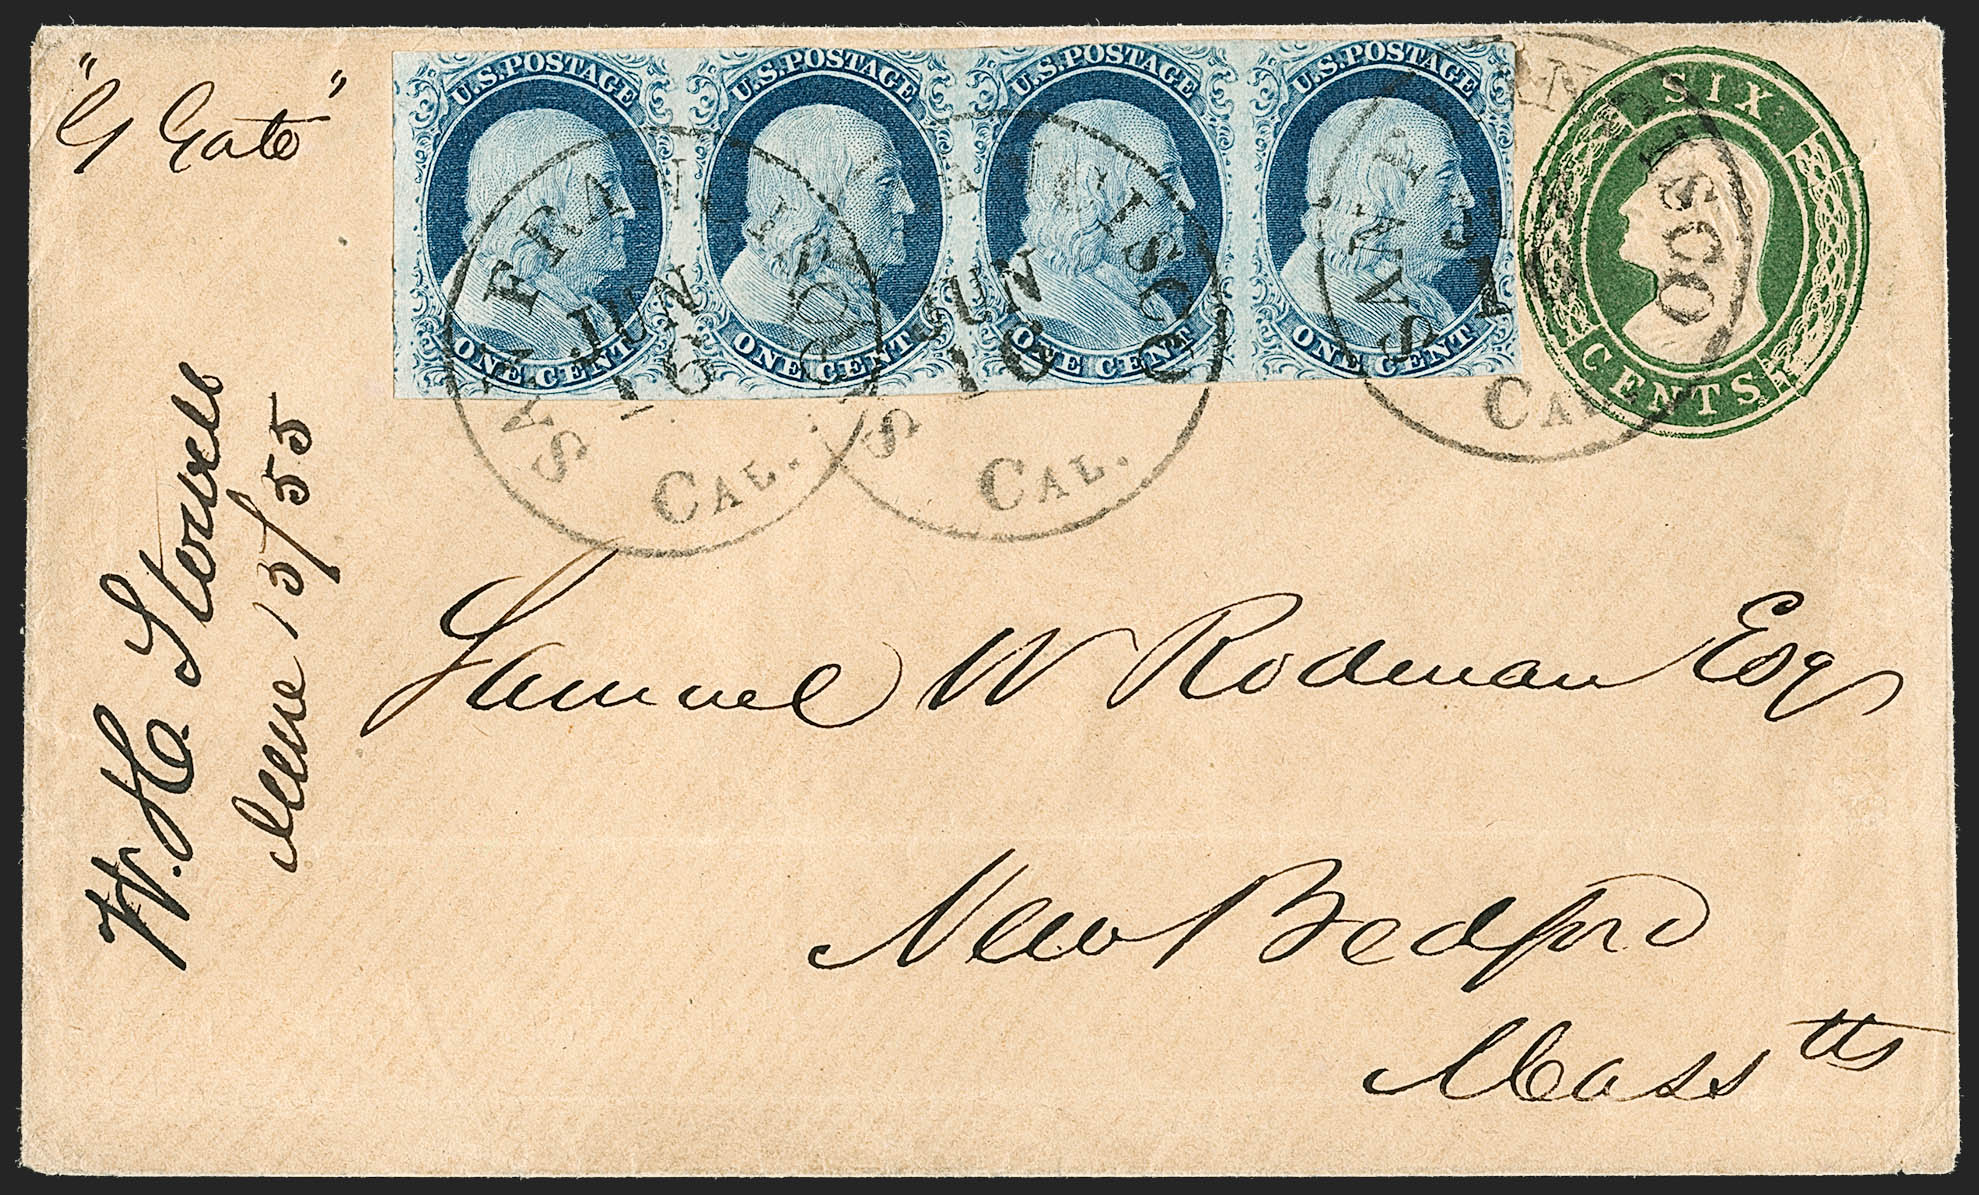 "G Gate"
U.S. POSTAGE
ONE CENT
U.S. POSTAGE
ONE CENT
U.S. POSTAGE
ONE CENT
U.S. POSTAGE
ONE CENT
SIX
CENTS
SAN FRANCISCO
JUN
16
CAL.
SAN FRANCISCO
JUN
16
CAL.
SAN FRANCISCO
CAL.
W. H. Stowell
June 15/55
Samuel W Rodman Esq
New Bedford
Masstts